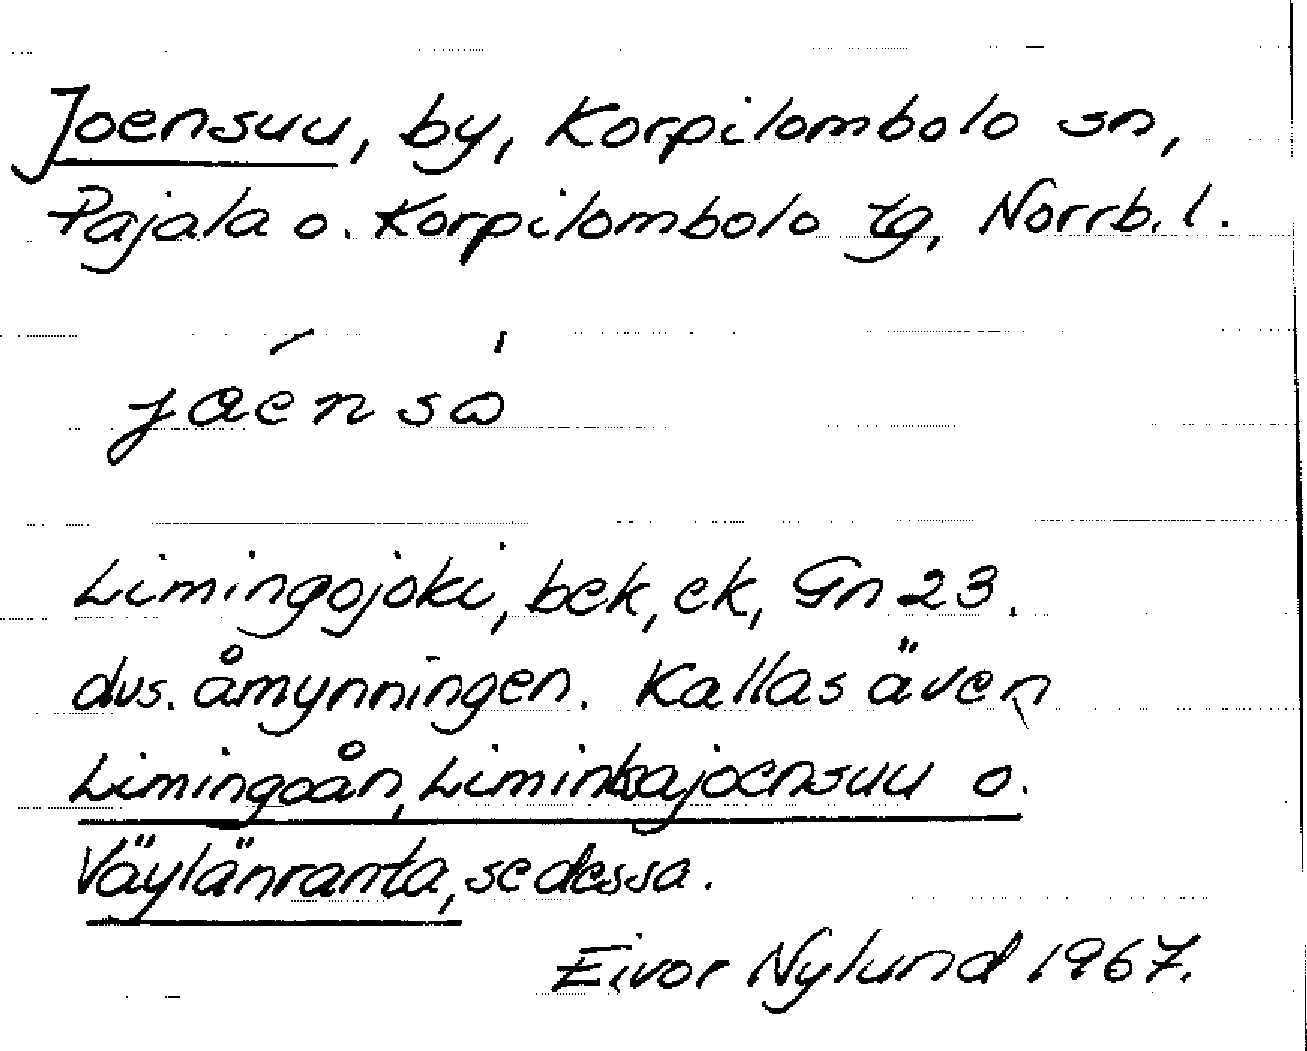 Joensuu, by, Korpilombolo sn,
Pajala o. Korpilombolo tg, Norrb. l.
Limingojoki, bek, ek, Gn 23.
dvs. åmynningen. Kallas även
Limingoån, Liminkajoensuu o.
Väylänranta, se dessa.
Eivor Nylund 1967.